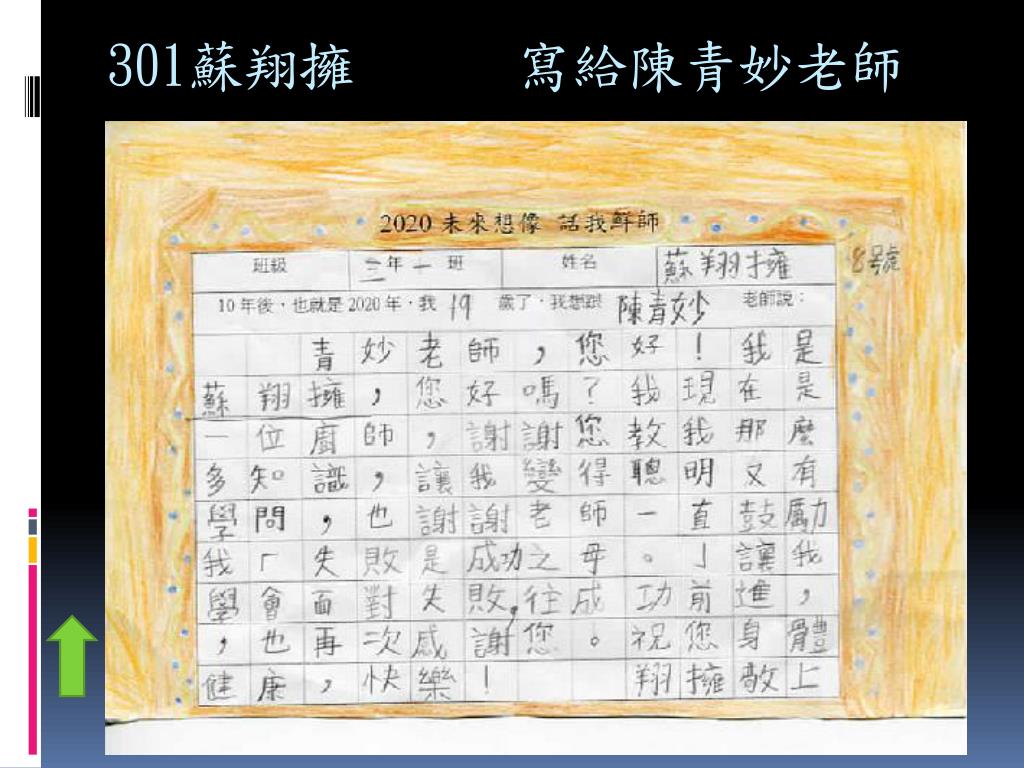 301蘇翔擁 寫給陳青妙老師
2020 未來想像 話我鮮師
班級 三年一班 姓名 蘇翔擁 8號
10年後,也就是2020年,我19歲了,我想跟陳青妙老師說:
青妙老師,您好!我是
蘇翔擁,您好嗎?我現在是
一位廚師,謝謝您教我那麼
多知識,讓我變得聰明又有
學問,也謝謝老師一直鼓勵
我「失敗是成功之母。」讓我
學會面對失敗,往成功前進,
,也再次感謝您。祝您身體
健康,快樂!翔擁敬上